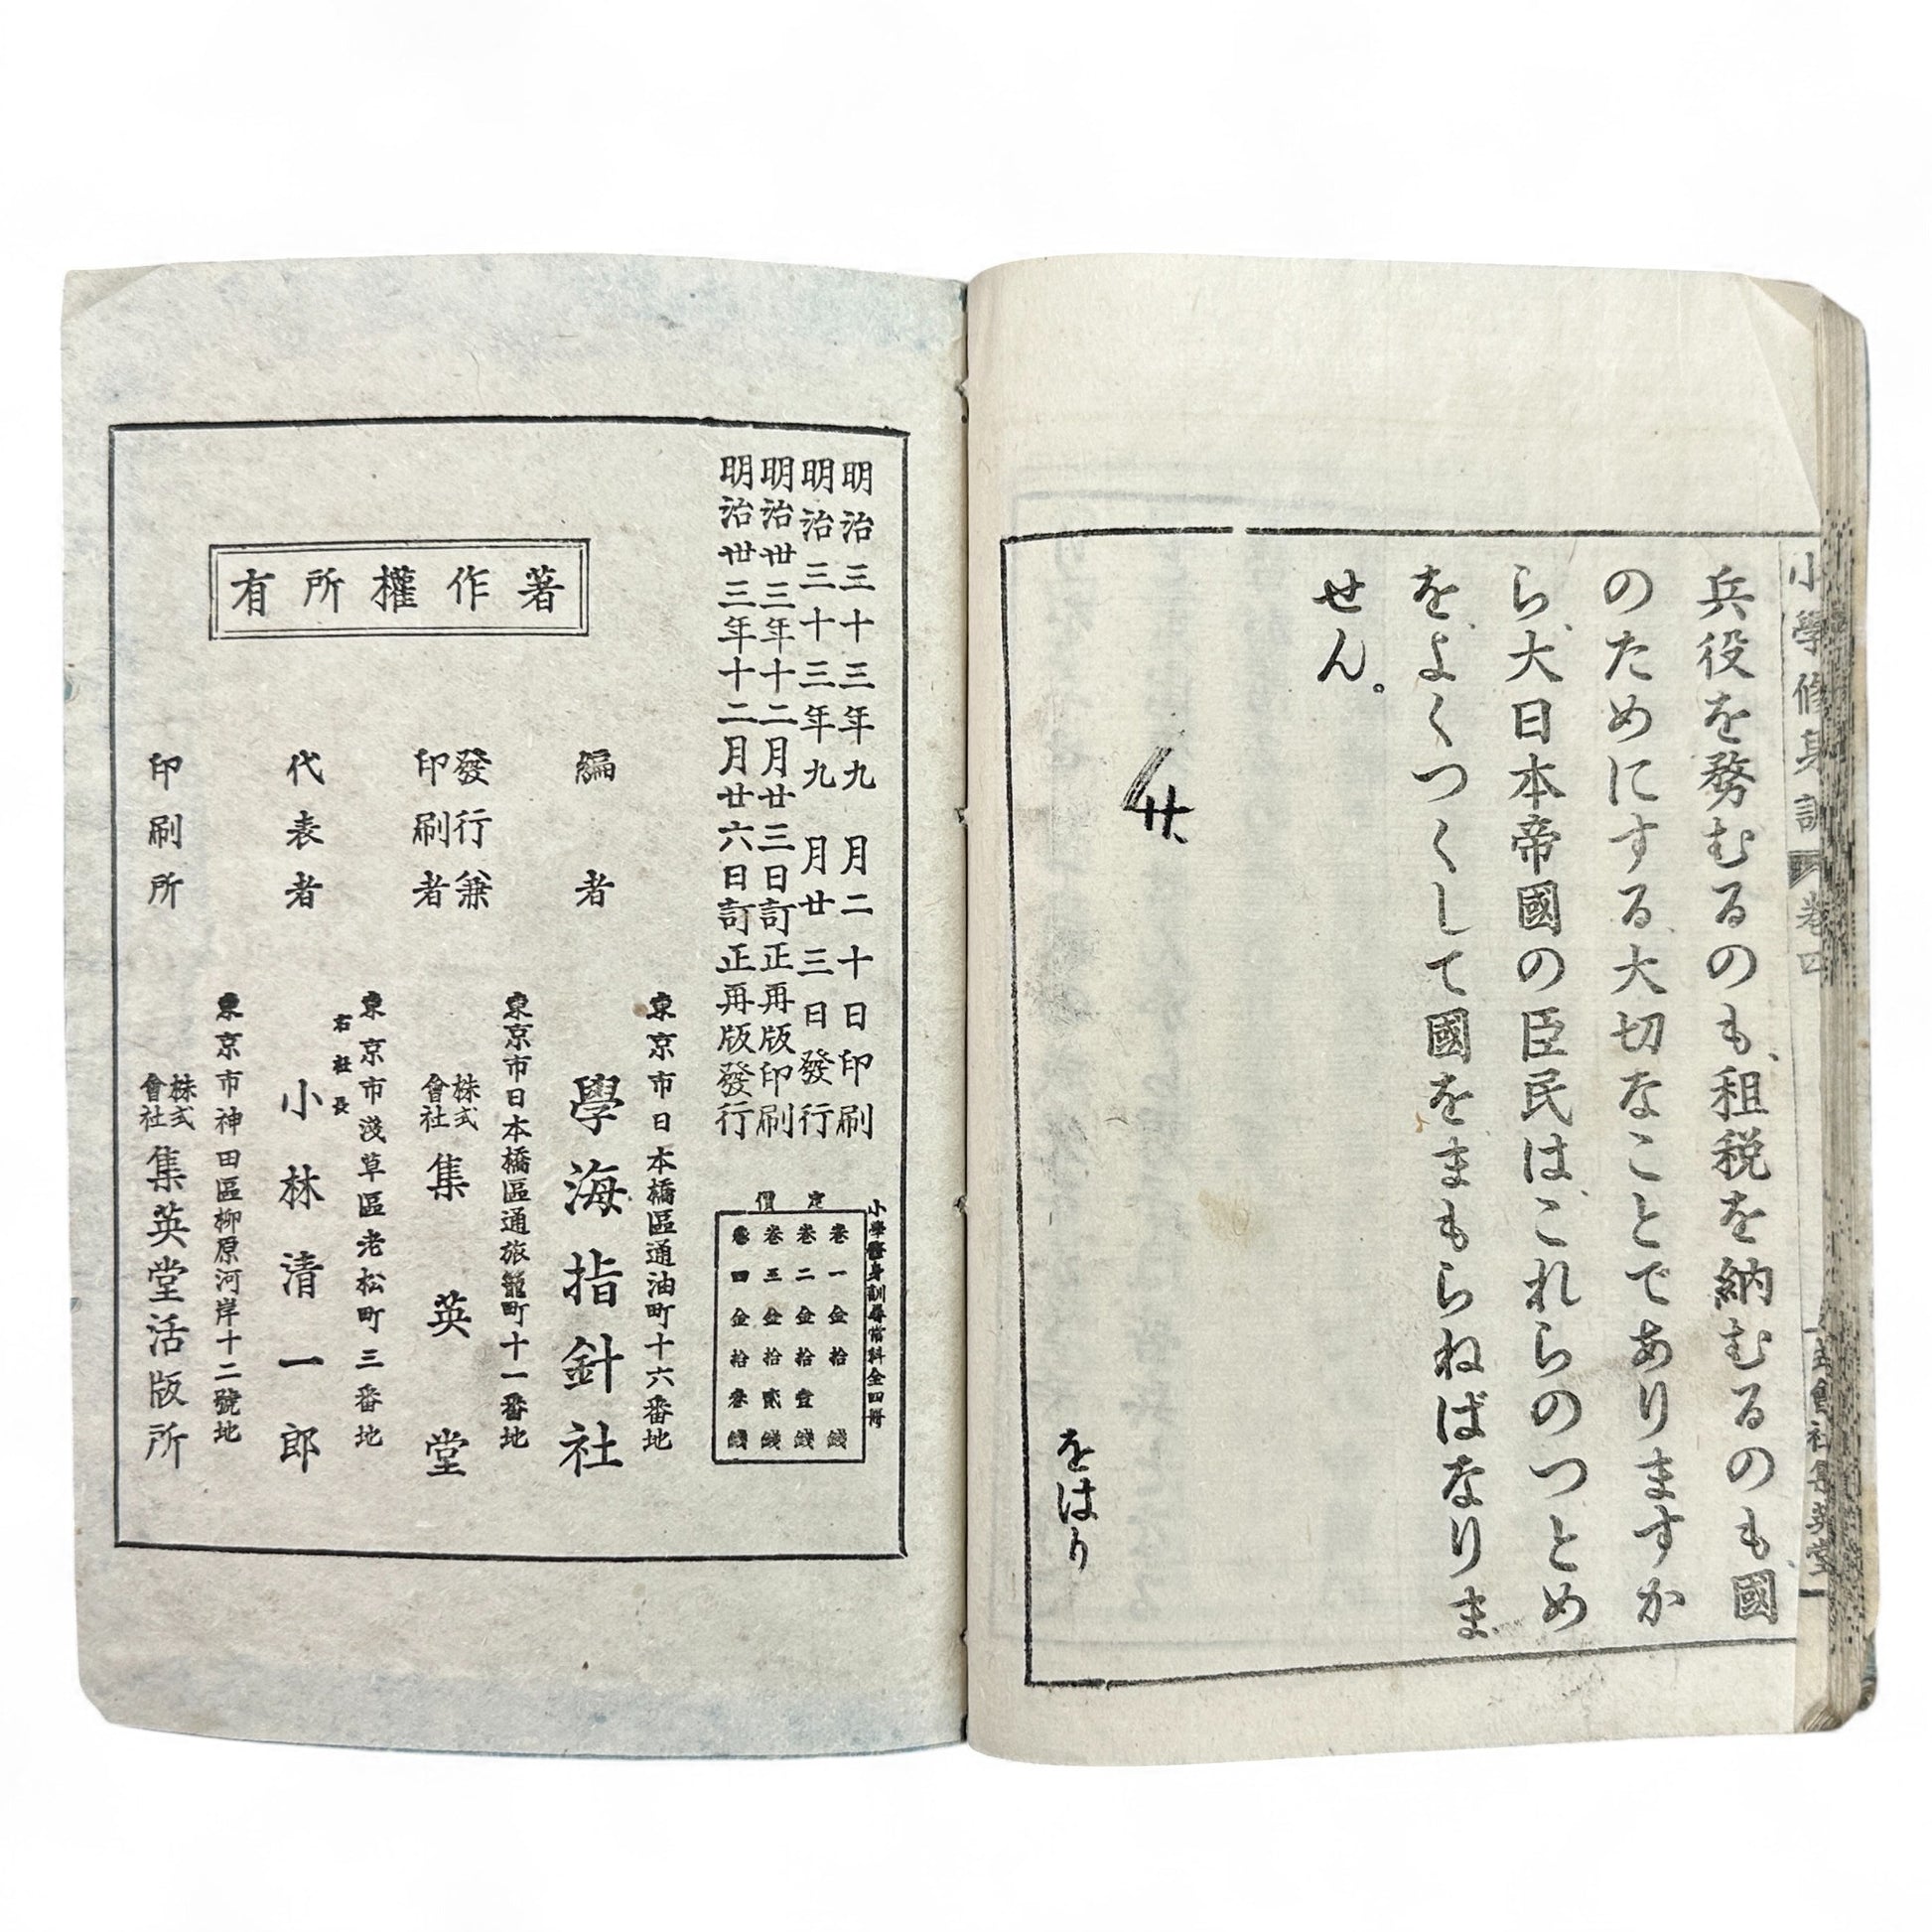 小學修身訓 卷四
兵役を務むるのも、租税を納むるのも、國
のためにする、大切なことでありますか
ら、大日本帝國の臣民は、これらのつとめ
をよくつくして國をまもらねばなりま
せん。
をはり
明治三十三年九月二十日印刷
明治三十三年九月廿三日發行
明治卅三年十二月廿三日訂正再版印刷
明治卅三年十二月廿六日訂正再版發行
小學修身訓尋常科全四冊
定價
卷一金拾錢
卷二金拾壹錢
卷三金拾貳錢
卷四金拾參錢
著作權所有
東京市日本橋區通油町十六番地
編者 學海指針社
東京市日本橋區通旅籠町十一番地
發行兼印刷者 株式會社 集英堂
東京市淺草區老松町三番地
右社長
代表者 小林清一郎
東京市神田區柳原河岸十二號地
印刷所 株式會社 集英堂活版所